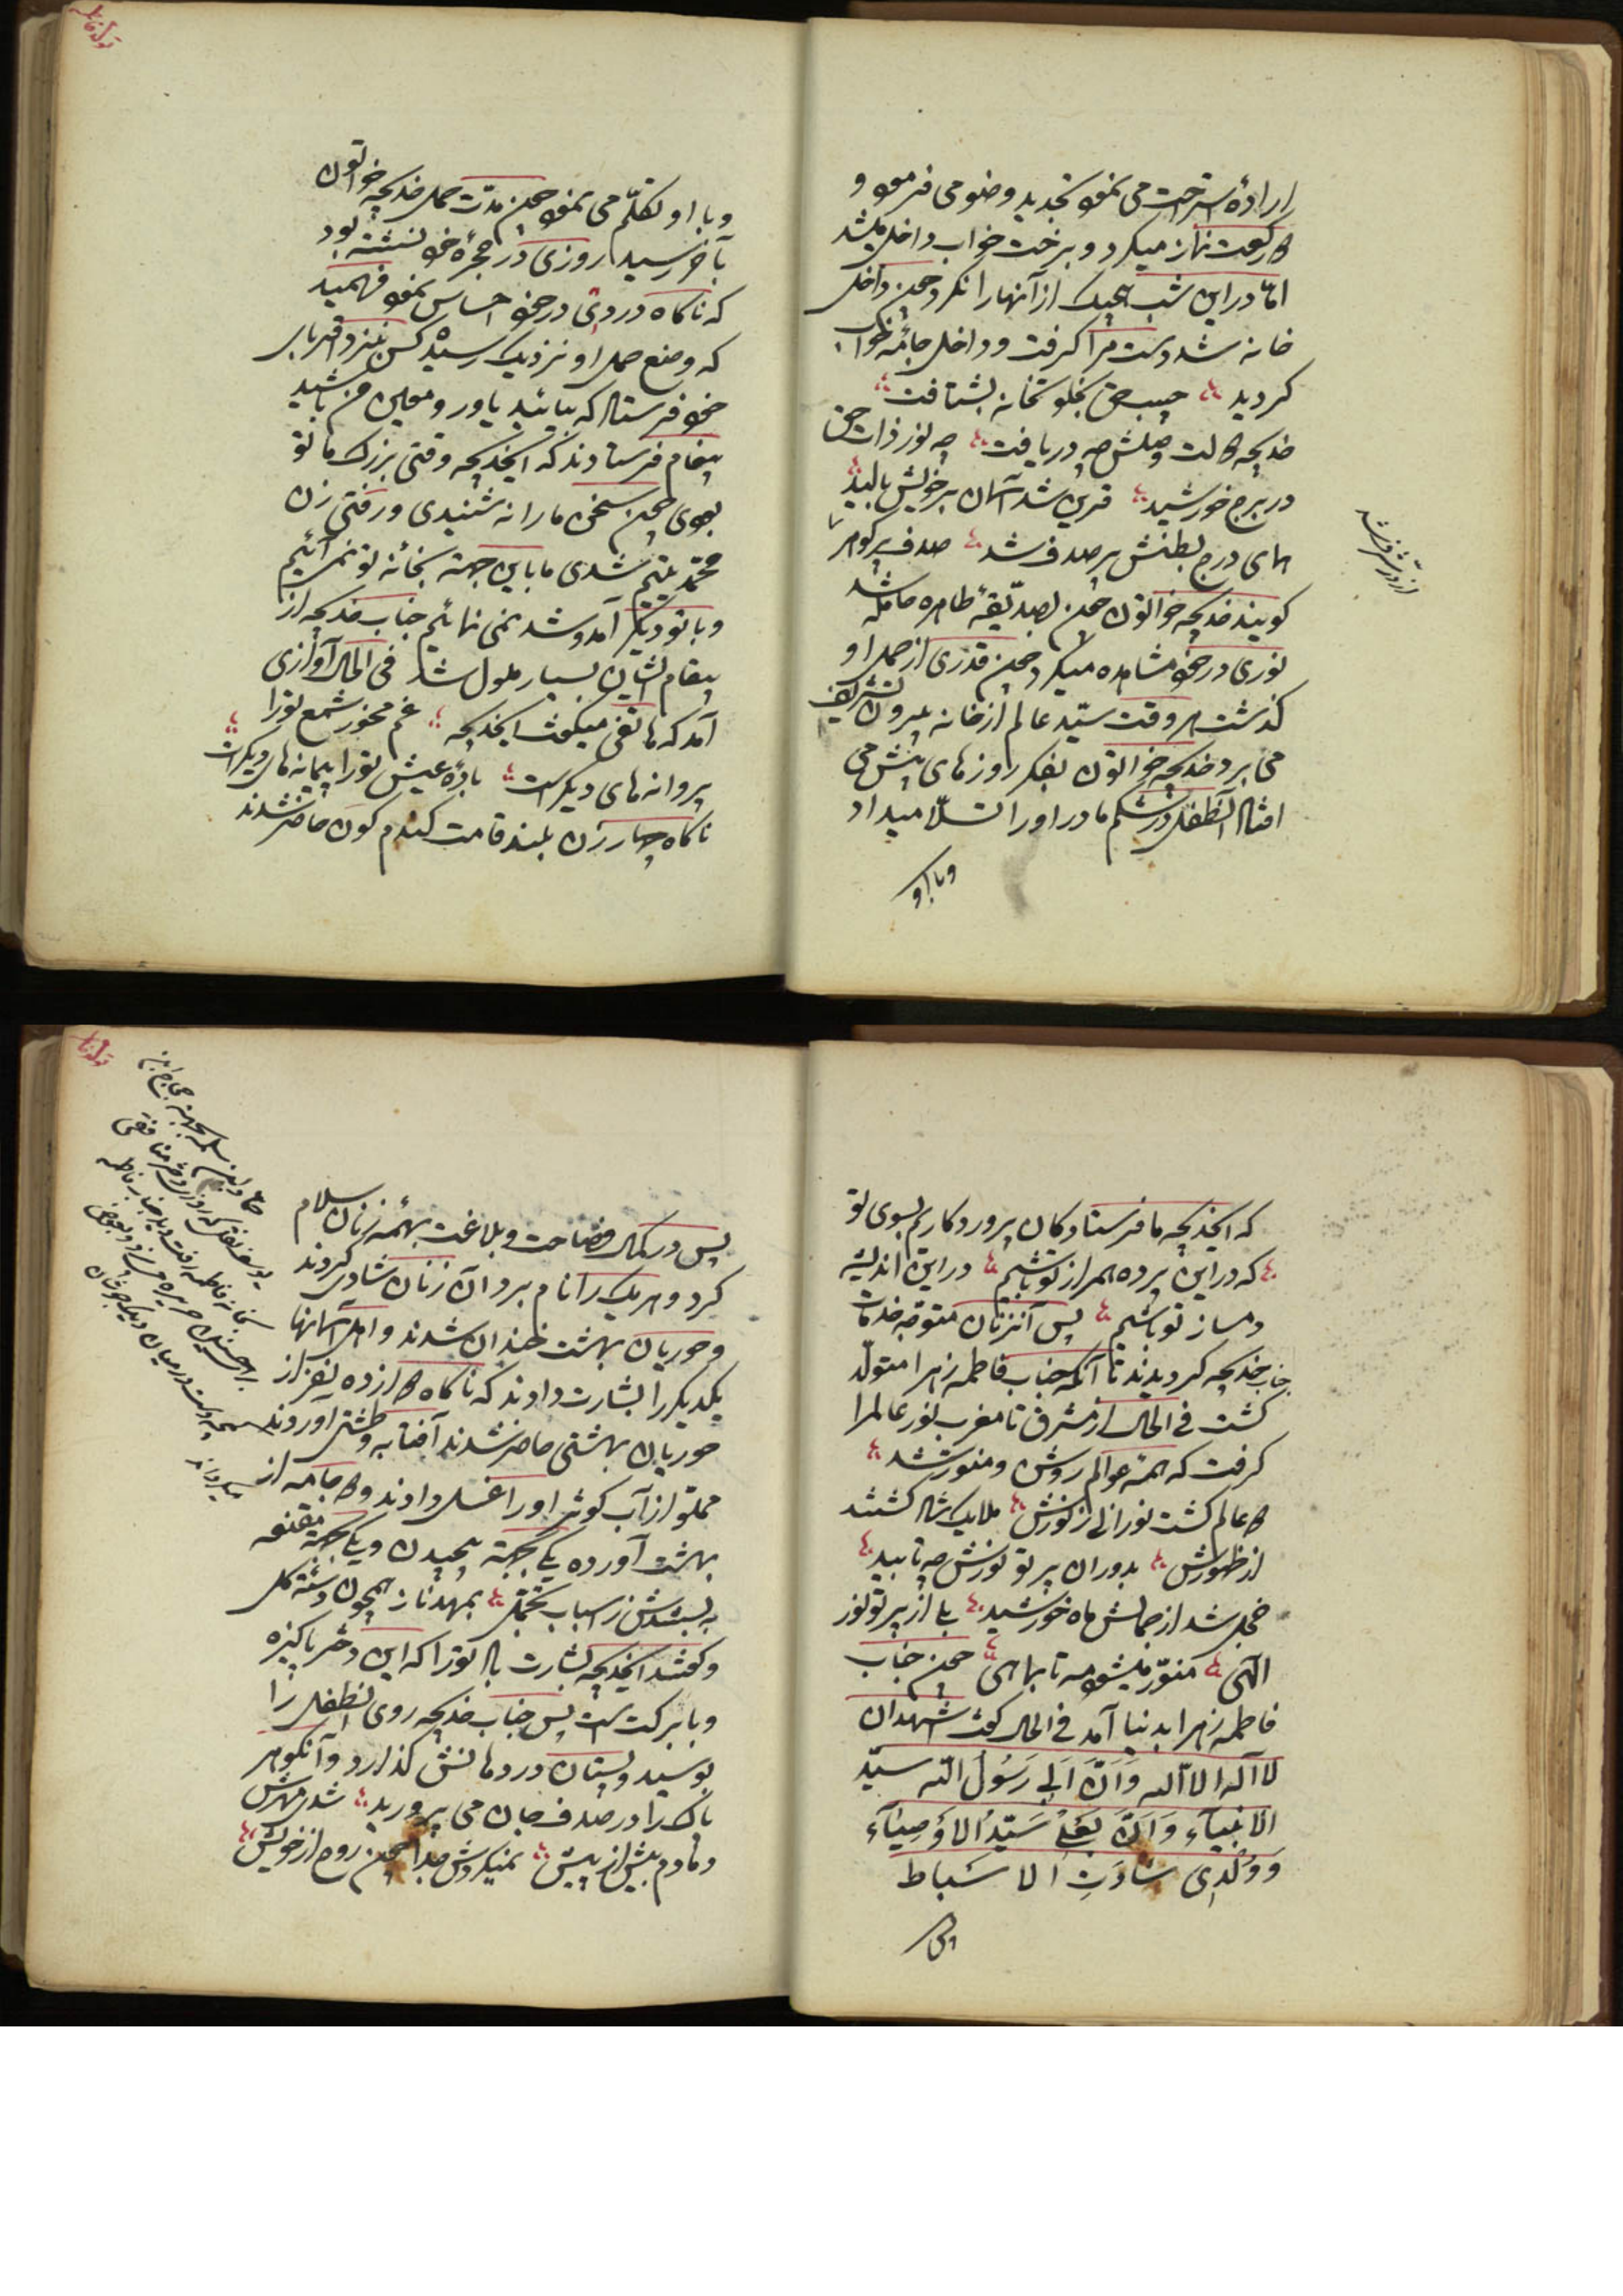 ارادهٔ استراحت می نمود تجدید وضو می فرمود و
رکعت نماز میکرد و برخت خواب داخل میشد
امّا در این شب هیچیک از آنها را نکرد چون داخل
خانه شد دست مرا گرفت و داخل جامهٔ خواب
گردید حبیب حق بخلوتخانه بشتافت
خدیجه وصلش چه دریافت چه نور ذات حق
در برج خورشید قرین شد آسمان بر خویش بالید
همای درج بطنش پر صدف شد صدف پر گوهر
از درّ شرف شد
گویند خدیجه خواتون چون بصدّیقهٔ طاهره حامله شد
نوری در خود مشاهده میکرد چون قدری از حمل او
گذشت هر وقت سیّد عالم از خانه بیرون تشریف
می برد خدیجه خواتون بفکر روزهای پیش می
افتاد آنطفل در شکم مادر او را تسلّا میداد
و با او
و با او تکلّم می نمود چون مدّت حمل خدیجه خواتون
بآخر رسید روزی در حجرهٔ خود نشسته بود
که ناگاه دردی در خود احساس نمود فهمید
که وضع حمل او نزدیک رسیده کس بنزد اقربای
خود فرستاد که بیائید یاور و معین من باشید
پیغام فرستادند که ایخدیجه وقتی بزرگ ما تو
بودی چون سخن ما را نه شنیدی و رفتی زن
محمّد یتیم شدی ما باین جهة بخانهٔ تو نمی آئیم
و با تو دیگر آمد و شد نمی نمائیم جناب خدیجه از
پیغام ایشان بسیار ملول شد فی الحال آوازی
آمد که هاتفی میگفت ایخدیجه غم مخور شمع تو را
پروانه های دیگر است بادهٔ عیش تو را پیمانه های دیگر است
ناگاه چهار زن بلند قامت گندم گون حاضر شدند
که ایخدیجه ما فرستادگان پروردگاریم بسوی تو
که در این پرده همراز تو باشیم در این اندیشه
دمساز تو باشیم پس آنزنان متوجّه خدمات
جناب خدیجه گردیدند تا آنکه جناب فاطمه زهرا متولّد
گشت فی الحال از مشرق تا مغرب نور عالم را
گرفت که همهٔ عوالم روشن و منوّر شد
عالم گشت نورانی ز نورش ملایک شاد گشتند
از ظهورش بدوران پرتو نورش چه تابید
خجل شد از جمالش ماه خورشید بلی از پرتو نور
الهی منوّر میشود مه تا بماهی چون جناب
فاطمه زهرا بدنیا آمد فی الحال گفت اشهد ان
لا اله الا الله وَ اَنَّ اَبی رَسُولُ الله سیّد
الانبیآء وَ اَنَّ بَعْلی سَیّدُ الاَوصِیآء
وَ وُلْدی سادَت الاسباط
پس در کمال فصاحت و بلاغت بهمهٔ زنان سلام
کرد و هر یک را نام برد آن زنان شادی کردند
و حوریان بهشت خندان شدند و اهل آسمانها
یکدیگر را بشارت دادند که ناگاه ده نفر از
حوریان بهشتی حاضر شدند آفتابه و طشتی آوردند
مملوّ از آب کوثر او را غسل دادند و جامه از
بهشت آورده یکی جهة پیچیدن و یکی جهة مقنعه
به بستندش ز اسباب تجمّل بمهد ناز همچون دستهٔ گل
و گفتند ایخدیجه بشارت باد تو را که این دختر پاکیزه
و با برکت است پس جناب خدیجه روی آنطفل را
بوسید و پستان در دهانش گذارد و آنگوهر
پاک را در صدف جان می پرورید شدی مهرش
دمادم بیش از پیش نمیکردش جدا چون روح از خویش